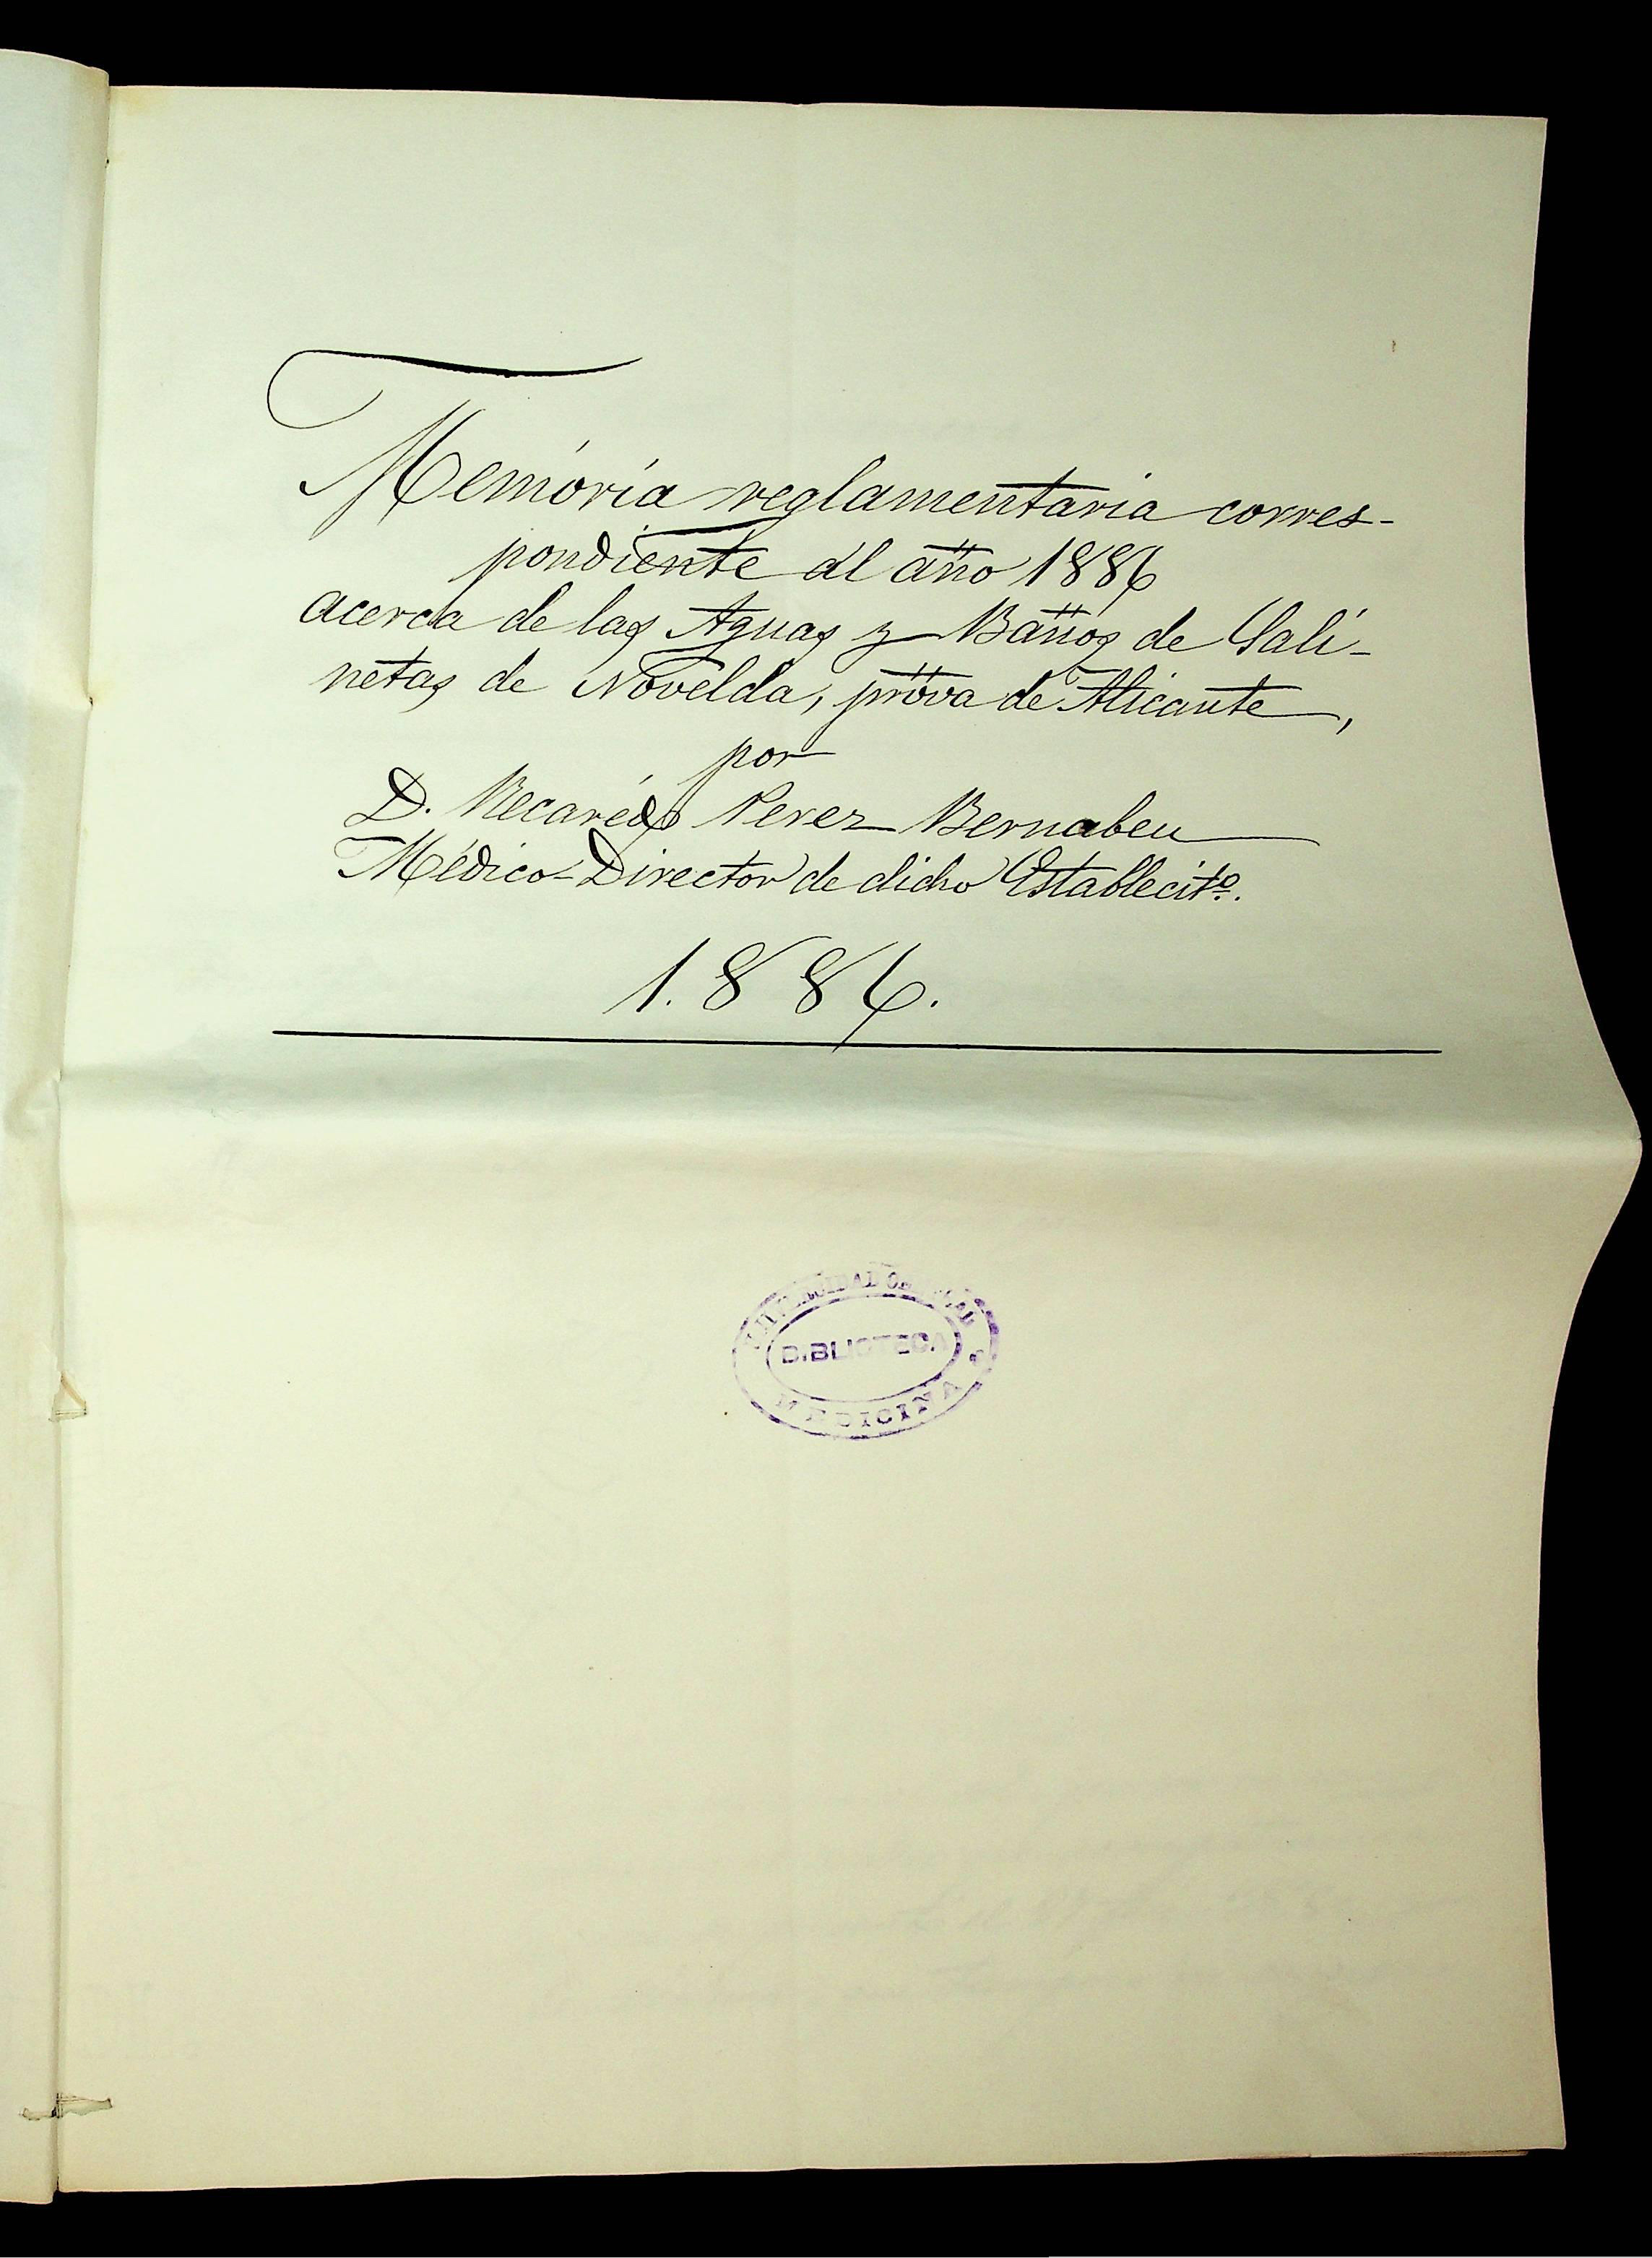 Memória reglamentaria corres-
pondiente al año 1886
acerca de las Aguas y Baños de Sali-
netas de Novelda, prova de Alicante,
por
D. Recarédo Perez Bernabeu
Médico-Director de dicho Establecitº.
1.886.
BIBLIOTECA
MEDICINA